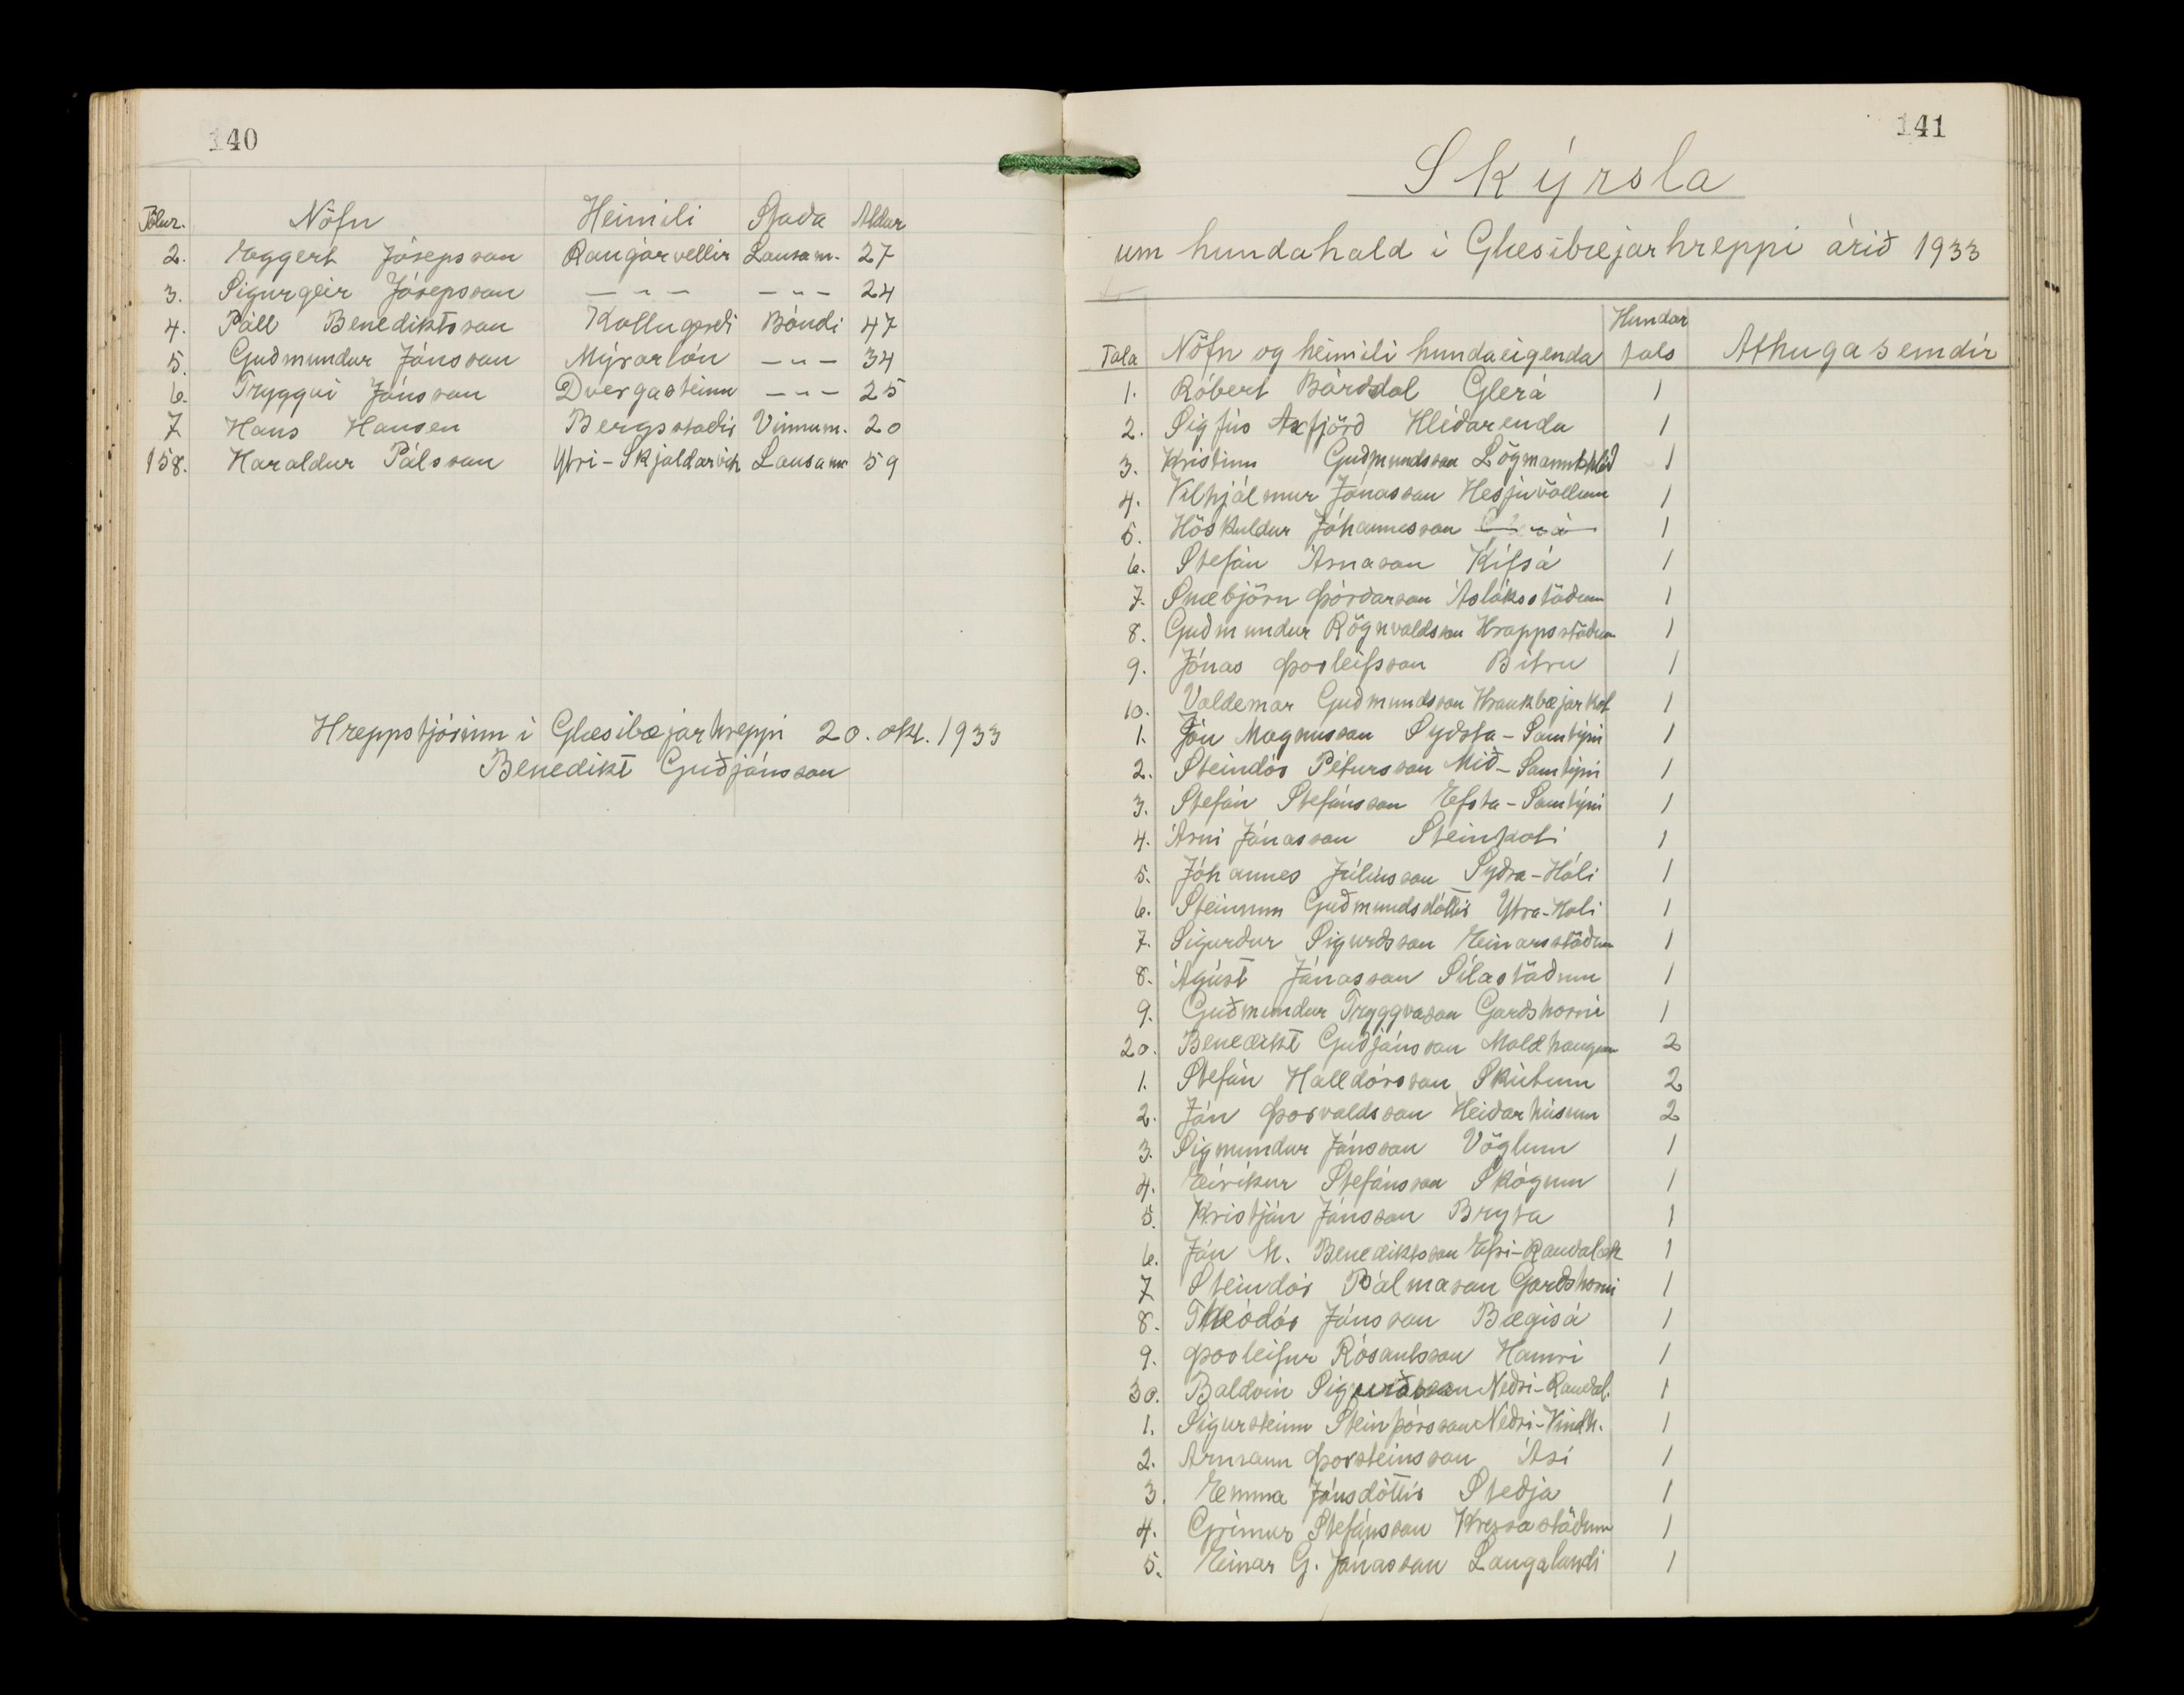 140
Tölur. Nöfn Heimili Staða Aldur
2. Eggert Jósepsson Rangárvellir Lausam. 27
3. Sigurgeir Jósepsson — " — — " — 24
4. Páll Benediktsson Kollugerði Bóndi 47
5. Guðmundur Jónsson Mýrarlón — " — 34
6. Tryggvi Jónsson Dvergasteinn — " — 25
7 Hans Hansen Bergsstaðir Vinnum. 20
158. Haraldur Pálsson Ytri-Skjaldarvík Lausam 59
Hreppstjórinn í Glæsibæjarhreppi 20. okt. 1933
Benedikt Guðjónsson
141
Skýrsla
um hundahald í Glæsibæjarhreppi árið 1933
Tala Nöfn og heimili hundaeigenda Hundar tals Athugasemdir
1. Róbert Bárðdal Glerá 1
2. Sigfús Axfjörð Hlíðarenda 1
3. Kristinn Guðmundsson Lögmannshlíð 1
4. Vilhjálmur Jónasson Hesjuvöllum 1
5. Höskuldur Jóhannesson 1
6. Stefán Árnason Kífsá 1
7. Snæbjörn Þórðarson Ásláksstöðum 1
8. Guðmundur Rögnvaldsson Hrappsstöðum 1
9. Jónas Þorleifsson Bitru 1
10. Valdemar Guðmundsson Kraukbæjarkot 1
1. Jón Magnusson Syðsta-Samtýni 1
2. Steindór Pétursson Mið-Samtýni 1
3. Stefán Stefánsson Efsta-Samtýni 1
4. Árni Jónasson Steinkoti 1
5. Jóhannes Júlíusson Syðra-Hóli 1
6. Steinunn Guðmundsdóttir Ytra-Hóli 1
7. Sigurður Sigurðsson Einarsstöðum 1
8. Ágúst Jónasson Sílastöðum 1
9. Guðmundur Tryggvason Garðshorni 1
20. Benedikt Guðjónsson Moldhaugum 2
1. Stefán Halldórsson Skútum 2
2. Jón Þorvaldsson Heiðarhúsum 2
3. Sigmundur Jónsson Vöglum 1
4. Eiríkur Stefánsson Skógum 1
5. Kristján Jónsson Bryta 1
6. Jón M. Benediktsson Efri-Rauðalæk 1
7 Steindór Pálmason Garðshorni 1
8. Theódór Jónsson Bægisá 1
9. Þorleifur Rósantsson Hamri 1
30. Baldvin Sigurðsson Neðri-Rauðal. 1
1. Sigursteinn Steinþórsson Neðri-Vindh. 1
2. Ármann Þorsteinsson Ási 1
3. Emma Jónsdóttir Steðja 1
4. Grímur Stefánsson Krossastöðum 1
5. Einar G. Jónasson Laugalandi 1